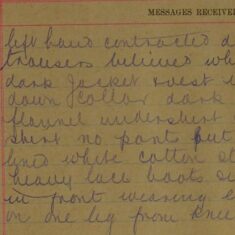 MESSAGES RECEIVE
left hand contracted d
trousers believed wh
dark Jacket & vest
down collar dark
flannel undershirt
shirt no pants but
lined white cotton
heavy lace boots
in front wearing
on one leg from knee